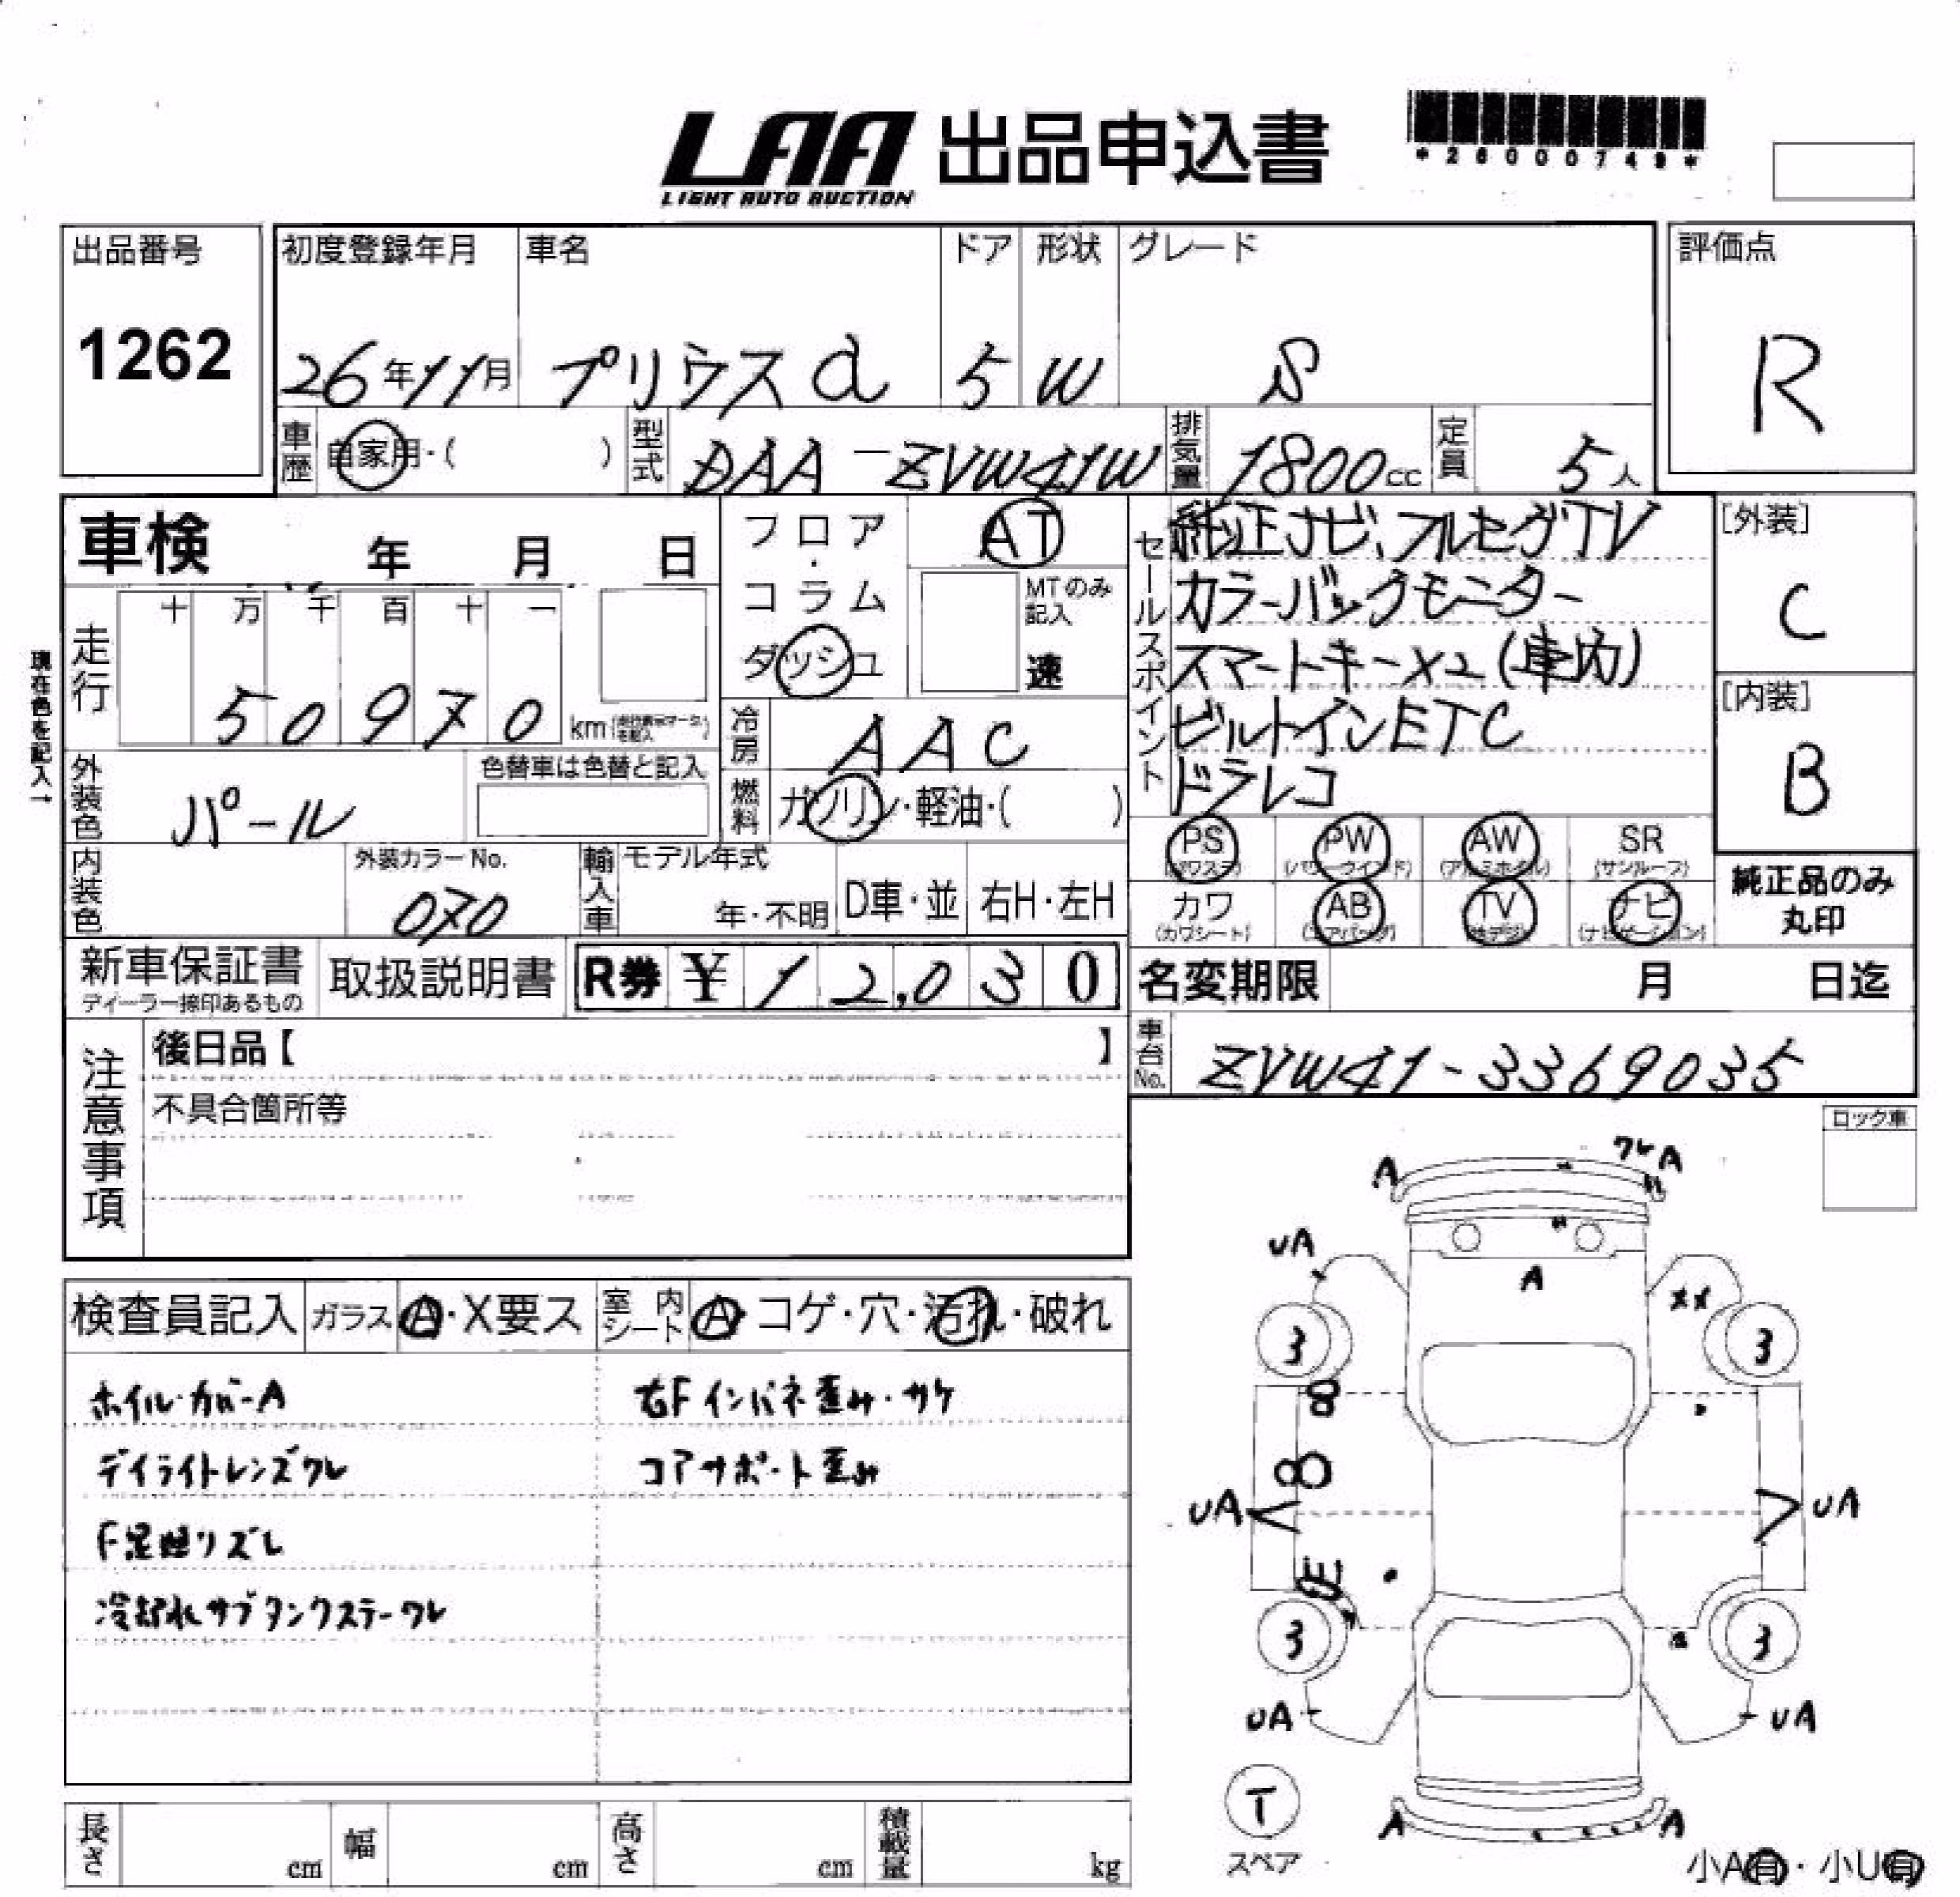 LAA 出品申込書
LIGHT AUTO AUCTION
*26000749*
出品番号
1262
初度登録年月 車名 ドア 形状 グレード
26年11月 プリウスα 5 W S
評価点
R
車歴 自家用・( ) 型式 DAA-ZVW41W 排気量 1800cc 定員 5人
車検 年 月 日
フロア・コラム ダッシュ
AT
MTのみ記入
速
セールスポイント
純正ナビ、フルセグTV
カラーバックモニター
スマートキーx2(車内)
ビルトインETC
ドラレコ
[外装]
C
[内装]
B
現在色を記入→
走行 十 万 千 百 十 一
50970 km
冷房 AAC
外装色 パール
色替車は色替と記入
燃料 ガソリン・軽油・( )
PS PW AW SR
(パワステ) (パワーウインド) (アルミホイル) (サンルーフ)
カワ AB TV ナビ
(カワシート) (エアバック) (地デジ) (ナビゲーション)
純正品のみ
丸印
内装色 外装カラーNo. 070
輸入車 モデル年式 年・不明 D車・並 右H・左H
新車保証書 取扱説明書 R券 ¥12,030
ディーラー捺印あるもの
名変期限 月 日迄
車台No. ZVW41-3369035
注意事項
後日品【 】
不具合箇所等
ロック車
検査員記入 ガラス A・X要ス 室内シート A・コゲ・穴・汚れ・破れ
ホイルカバーA
デイライトレンズワレ
F足廻リズレ
冷却水サブタンクステーワレ
右Fインパネ歪み・サケ
コアサポート歪み
A ワレA
UA A XX
3 3
UA UA
3 3
UA UA
T
スペア
A A
小A有・小U有
長さ cm 幅 cm 高さ cm 積載量 kg